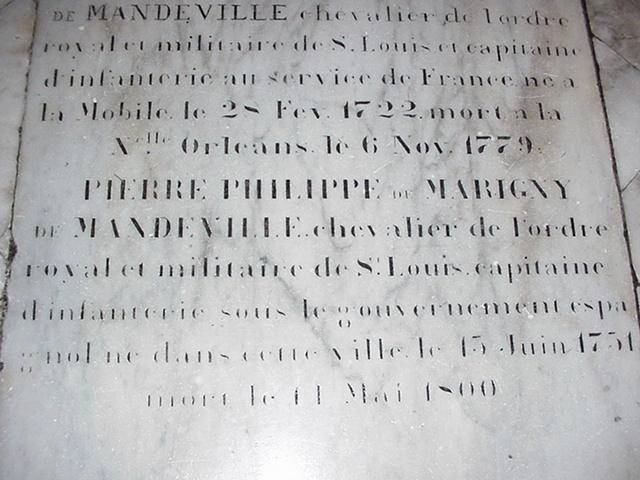 DE MANDEVILLE chevalier de l'ordre
royal et militaire de S. Louis et capitaine
d'infanterie au service de France, né a
la Mobile, le 28 Fev. 1722, mort a la
Nelle Orleans, le 6 Nov. 1779.
PIERRE PHILIPPE DE MARIGNY
DE MANDEVILLE, chevalier de l'ordre
royal et militaire de S. Louis, capitaine
d'infanterie sous le gouvernement espa
gnol né dans cette ville, le 15 Juin 1751
mort le 11 Mai 1800